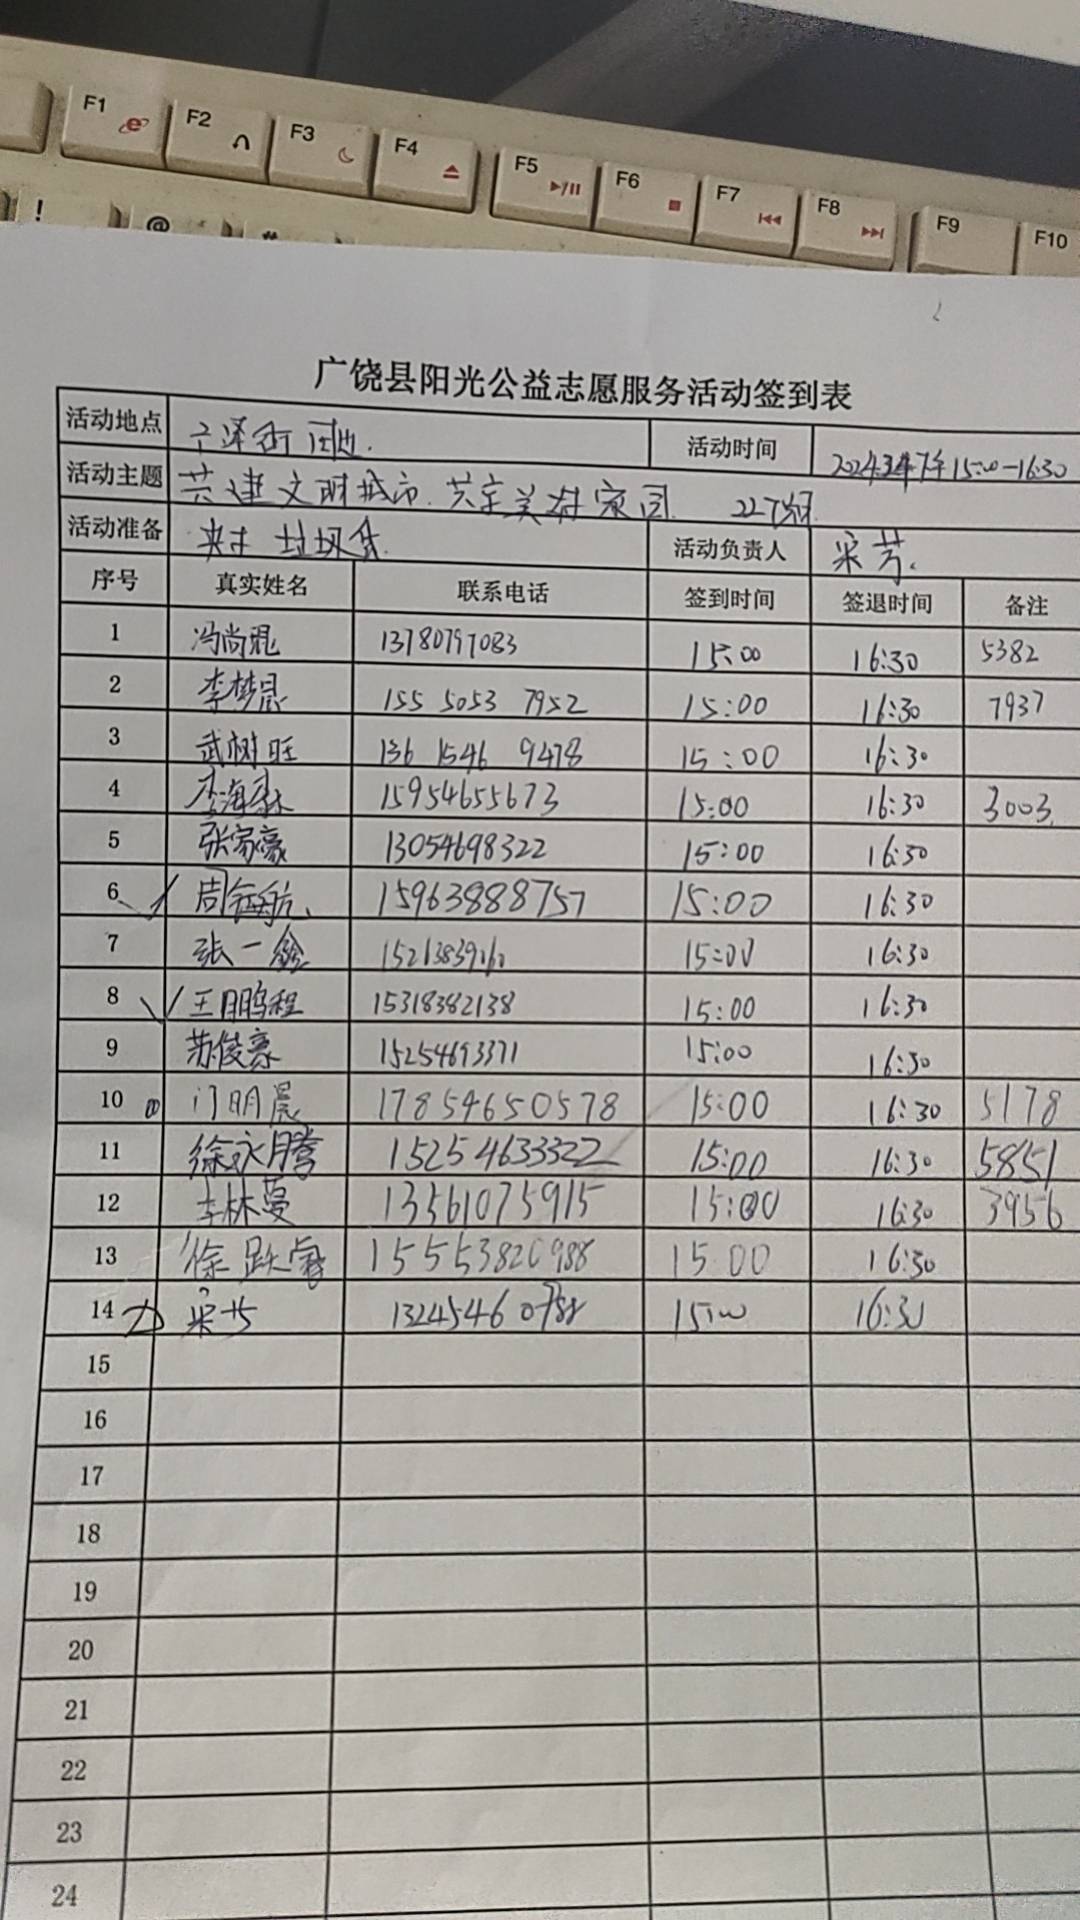 F1 F2 F3 F4 F5 F6 F7 F8 F9 F10
! @ #
广饶县阳光公益志愿服务活动签到表
活动地点 活动时间 15:00-16:30
活动主题 共建文明城市 共享美好家园
活动准备 夹子 垃圾袋 活动负责人 宋芳
序号 真实姓名 联系电话 签到时间 签退时间 备注
1 冯尚琨 13780797083 15:00 16:30 5382
2 李梦晨 155 5053 7952 15:00 16:30 7937
3 武树旺 136 1546 9478 15:00 16:30
4 李海森 15954655673 15:00 16:30 3003
5 张家豪 13054698322 15:00 16:30
6 周钰航 15963888757 15:00 16:30
7 张一鑫 15:00 16:30
8 王鹏程 15318382138 15:00 16:30
9 苏俊豪 15254693371 15:00 16:30
10 门明晨 17854650578 15:00 16:30 5178
11 徐永腾 15254633322 15:00 16:30 5851
12 李林蔓 13561075915 15:00 16:30 3956
13 徐跃 15553820988 15:00 16:30
14 宋芳 15:00 16:30
15
16
17
18
19
20
21
22
23
24